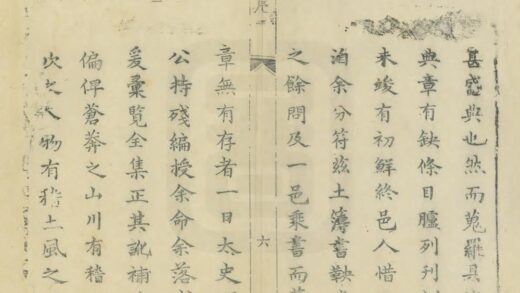 甚盛典也然而蒐羅具
典章有缺條目臚列刊
未竣有初鮮終邑人惜
洎余分符茲土簿書鞅
之餘問及一邑乘書而
六
章無有存者一日太史
公持殘編授余命余落
爰彙覽全集正其訛補
偏俾蒼莽之山川有稽
次之人物有稽土風之